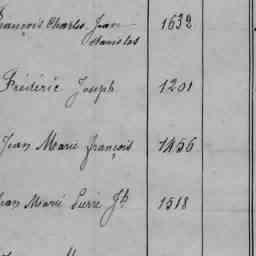 François Charles Jean 1632
Stanislas
Frédéric Joseph 1201
Jean Marie François 1456
Jean Marie Pierre Jh 1518